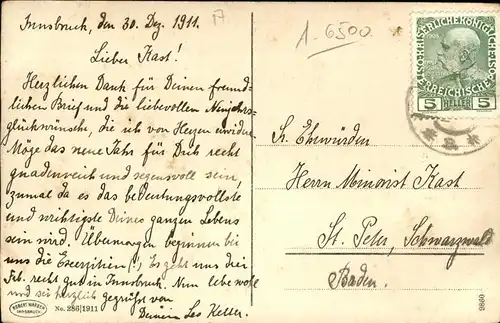 Innsbruck, den 30. Dez. 1911.
Lieber Kast!
Herzlichen Dank für Deinen freund-
lichen Brief und die liebevollen Neujahrs-
glückwünsche, die ich von Herzen erwidere.
Möge das neue Jahr für Dich recht
gnadenreich und segensvoll sein,
zumal da es das bedeutungsvollste
und wichtigste Deines ganzen Lebens
sein wird. Übermorgen beginnen bei
uns die Exerzitien(!) Es geht uns
recht gut in Innsbruck. Nun lebe wohl
und sei herzlich gegrüßt von
Deinem Leo Keller.
ROBERT WARGER
INNSBRUCK
No. 286|1911
1.- 6500
KAISERLICHE KÖNIGLICHE
ÖSTERREICHISCHE POST
5 HELLER 5
Sr. Ehrwürden
Herrn Minorist Kast
St. Peter, Schwarzwald
Baden.
9860